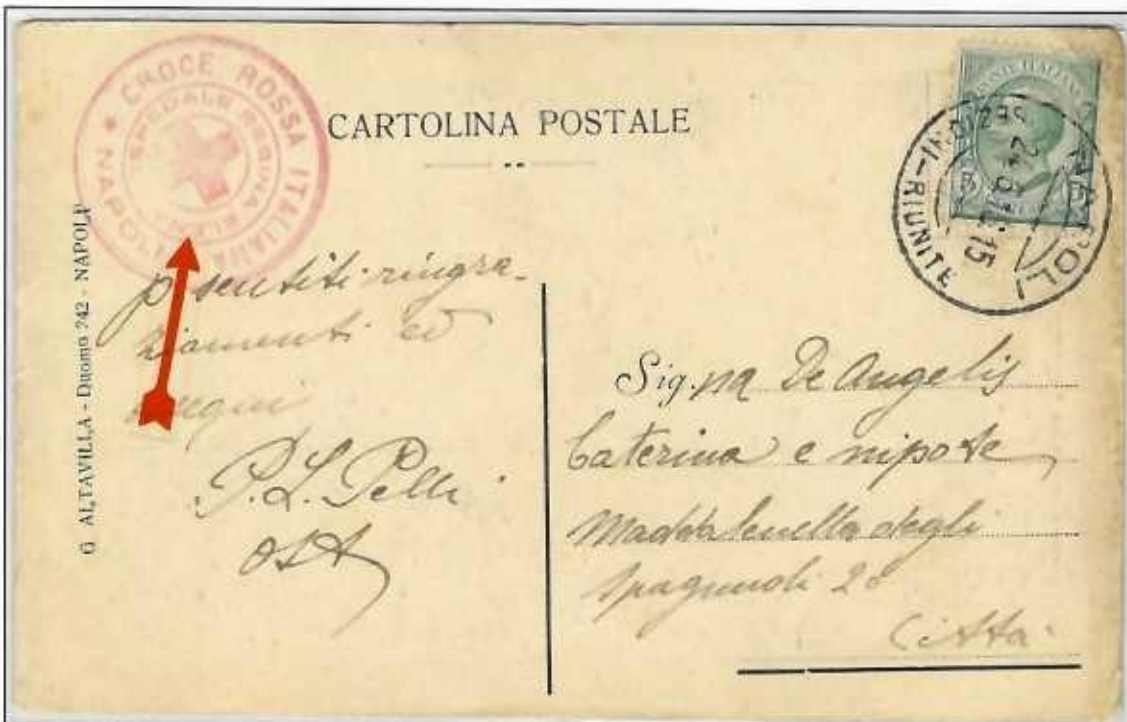 ★ CROCE ROSSA ITALIANA
NAPOLI
OSPEDALE REGINA ELENA
CARTOLINA POSTALE
POSTE ITALIANE
NAPOLI
SEZIONI-RIUNITE
15
G ALTAVILLA - Duomo 242 - NAPOLI
sentiti ringra-
ziamenti ed
ossequi
P. L. Pelli
Sig.na De Angelis
Caterina e nipote
Maddalenella degli
Spagnuoli 28
Città